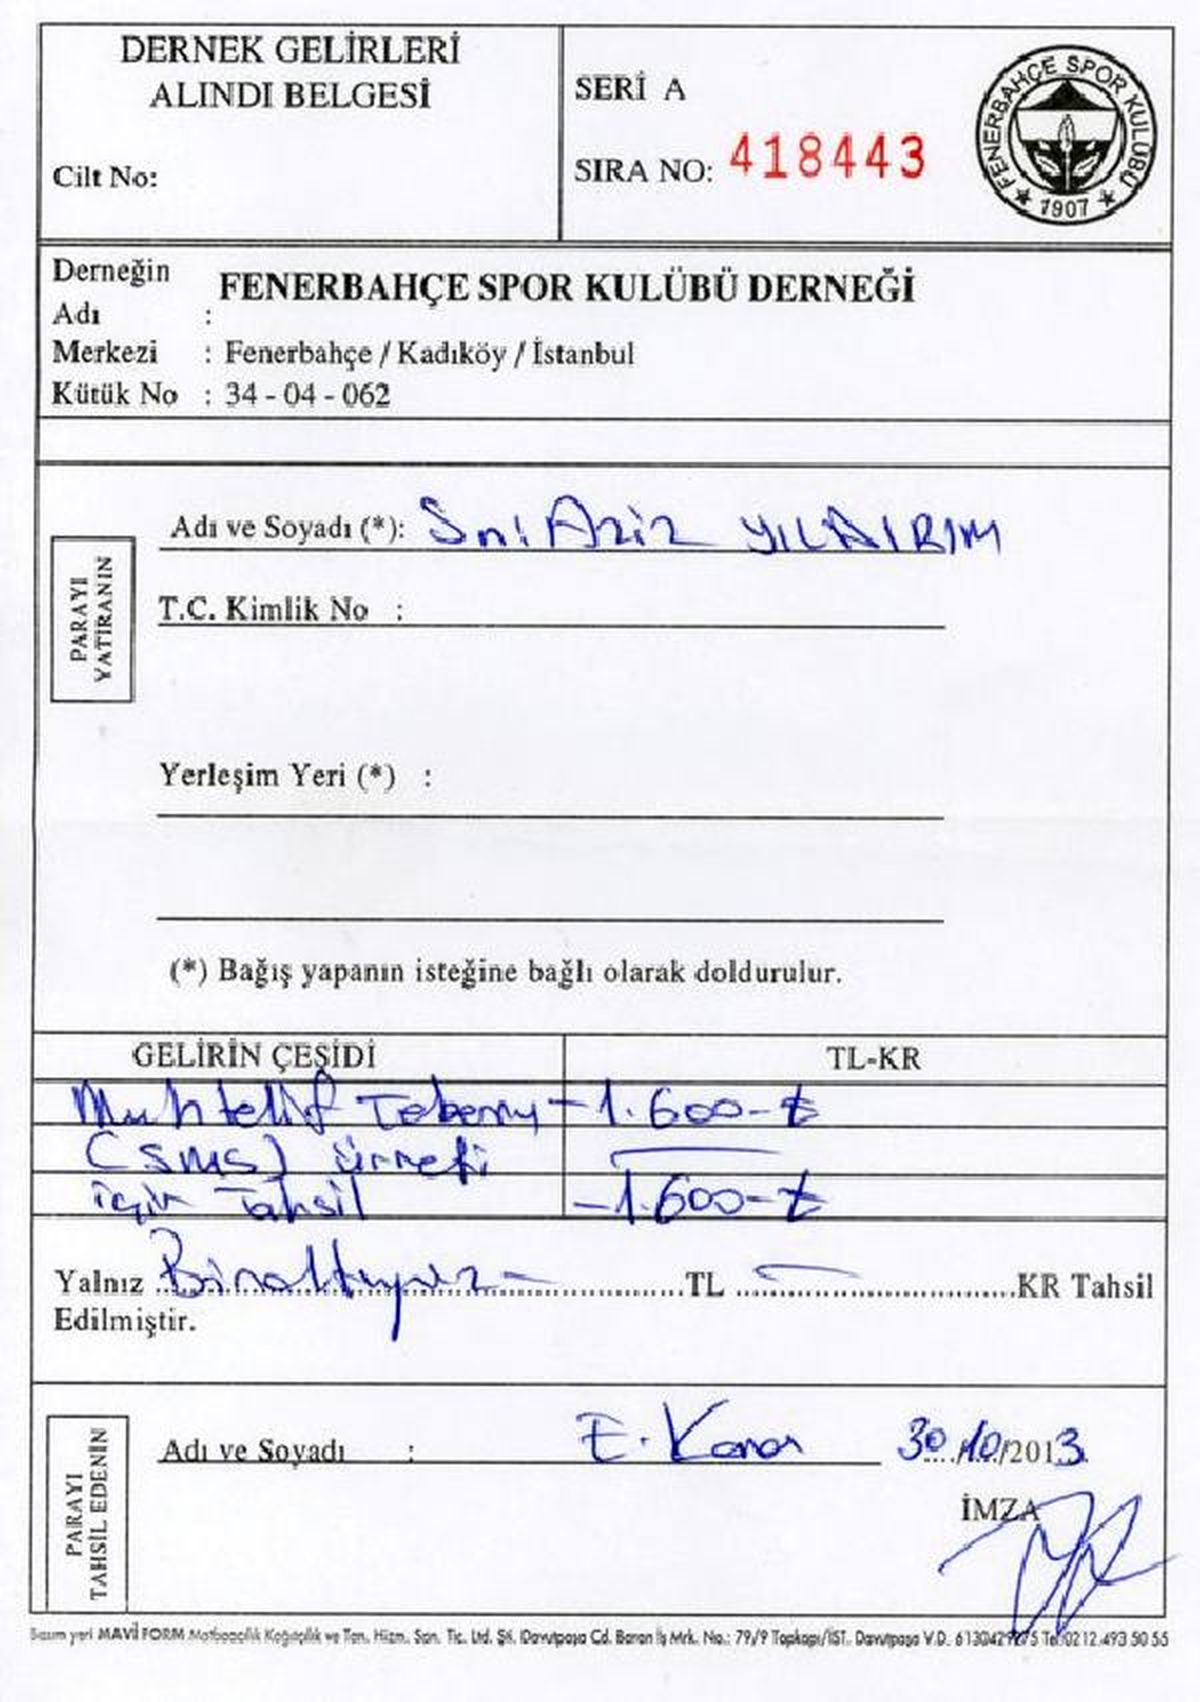 DERNEK GELİRLERİ
ALINDI BELGESİ
Cilt No:
SERİ A
SIRA NO: 418443
FENERBAHÇE SPOR KULÜBÜ
★ 1907 ★
Derneğin
Adı : FENERBAHÇE SPOR KULÜBÜ DERNEĞİ
Merkezi : Fenerbahçe / Kadıköy / İstanbul
Kütük No : 34 - 04 - 062
PARAYI
YATIRANIN
Adı ve Soyadı (*): Sn: Aziz YILDIRIM
T.C. Kimlik No :
Yerleşim Yeri (*) :
(*) Bağış yapanın isteğine bağlı olarak doldurulur.
GELİRİN ÇEŞİDİ TL-KR
Muhtelif -1.600-₺
(SMS) ücreti
için Tahsil -1.600-₺
Yalnız Binaltıyüz- TL KR Tahsil
Edilmiştir.
PARAYI
TAHSİL EDENİN
Adı ve Soyadı : E. 30/10/2013
İMZA
Basım yeri MAVİ FORM Matbaacılık Kağıtçılık ve Tan. Hizm. San. Tic. Ltd. Şti. Davutpaşa Cd. Baran İş Mrk. No.: 79/9 Topkapı/İST. Davutpaşa V.D. Tel:0212 493 50 55